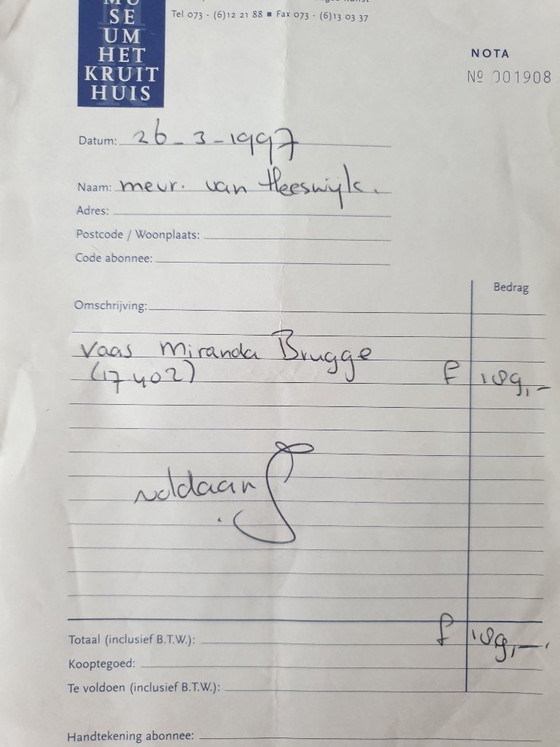 MU
SE
UM
HET
KRUIT
HUIS
Tel 073 - (6)12 21 88 ■ Fax 073 - (6)13 03 37
NOTA
Nº 001908
Datum: 26-3-1997
Naam: mevr. van Heeswijk.
Adres:
Postcode / Woonplaats:
Code abonnee:
Bedrag
Omschrijving:
Vaas Miranda Brugge
(17402) f 189,-
voldaan
Totaal (inclusief B.T.W.): f 189,-
Kooptegoed:
Te voldoen (inclusief B.T.W.):
Handtekening abonnee: